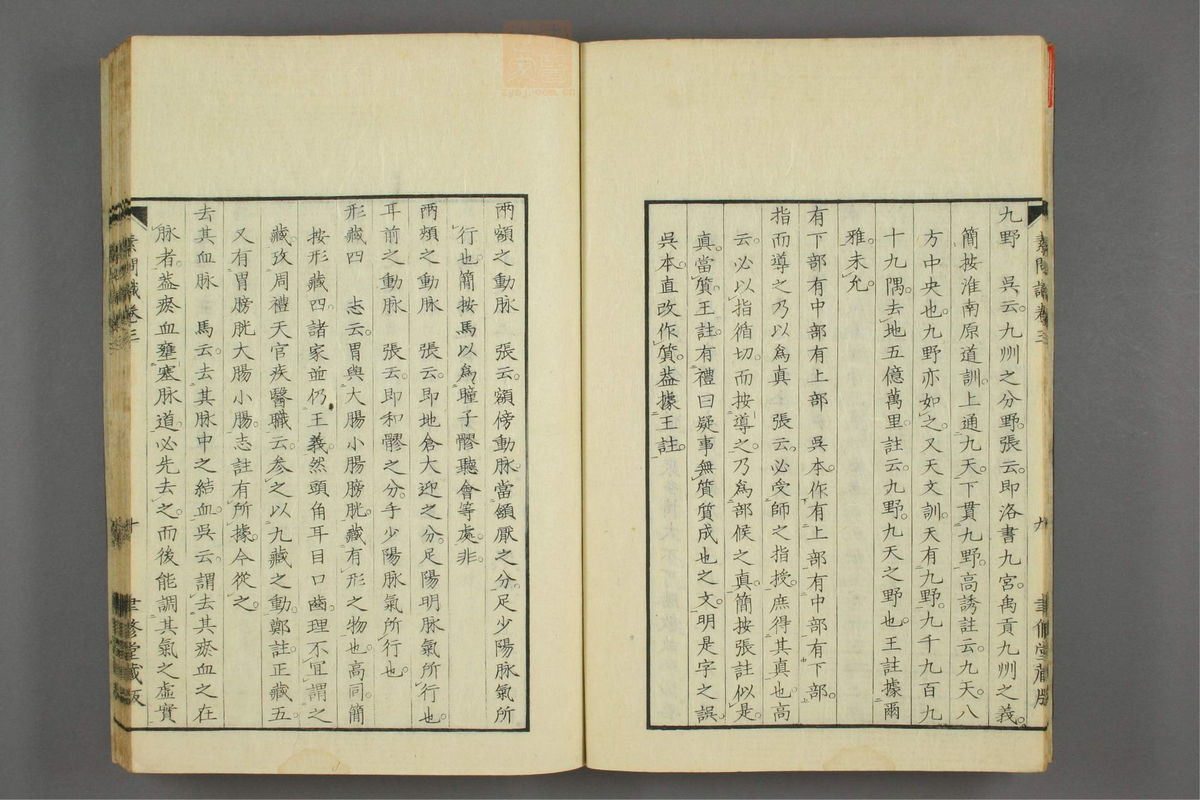 素問識卷三
九
聿修堂藏版
九野　吳云。九州之分野。張云。即洛書九宮。禹貢九州之義。
簡按淮南原道訓。上通九天。下貫九野。高誘註云。九天。八
方中央也。九野亦如之。又天文訓。天有九野。九千九百九
十九隅。去地五億萬里。註云。九野。九天之野也。王註據爾
雅。未允。
有下部有中部有上部　吳本。作有上部。有中部。有下部。
指而導之乃以爲真　張云。必受師之指授。庶得其真也。高
云。必以指循切。而按導之。乃爲部候之真。簡按張註似是。
真。當質。王註。有禮曰疑事無質。質成也之文。明是字之誤。
吳本直改作質。葢據王註。
兩額之動脉　張云。額傍動脉。當頷厭之分。足少陽脉氣所
行也。簡按馬以爲瞳子髎聽會等處。非。
兩頰之動脉　張云。即地倉大迎之分。足陽明脉氣所行也。
耳前之動脉　張云。即和髎之分。手少陽脉氣所行也。
形藏四　志云。胃與大腸小腸膀胱。藏有形之物也。高同。簡
按形藏四。諸家並仍王義。然頭角耳目口齒。理不宜謂之
藏。攷周禮天官疾醫職云。參之以九藏之動。鄭註正藏五。
又有胃膀胱大腸小腸。志註有所據。今從之。
去其血脉　馬云。去其脉中之結血。吳云。謂去其瘀血之在
脉者。葢瘀血壅塞脉道。必先去之。而後能調其氣之虛實
素問識卷三
十
聿修堂藏版